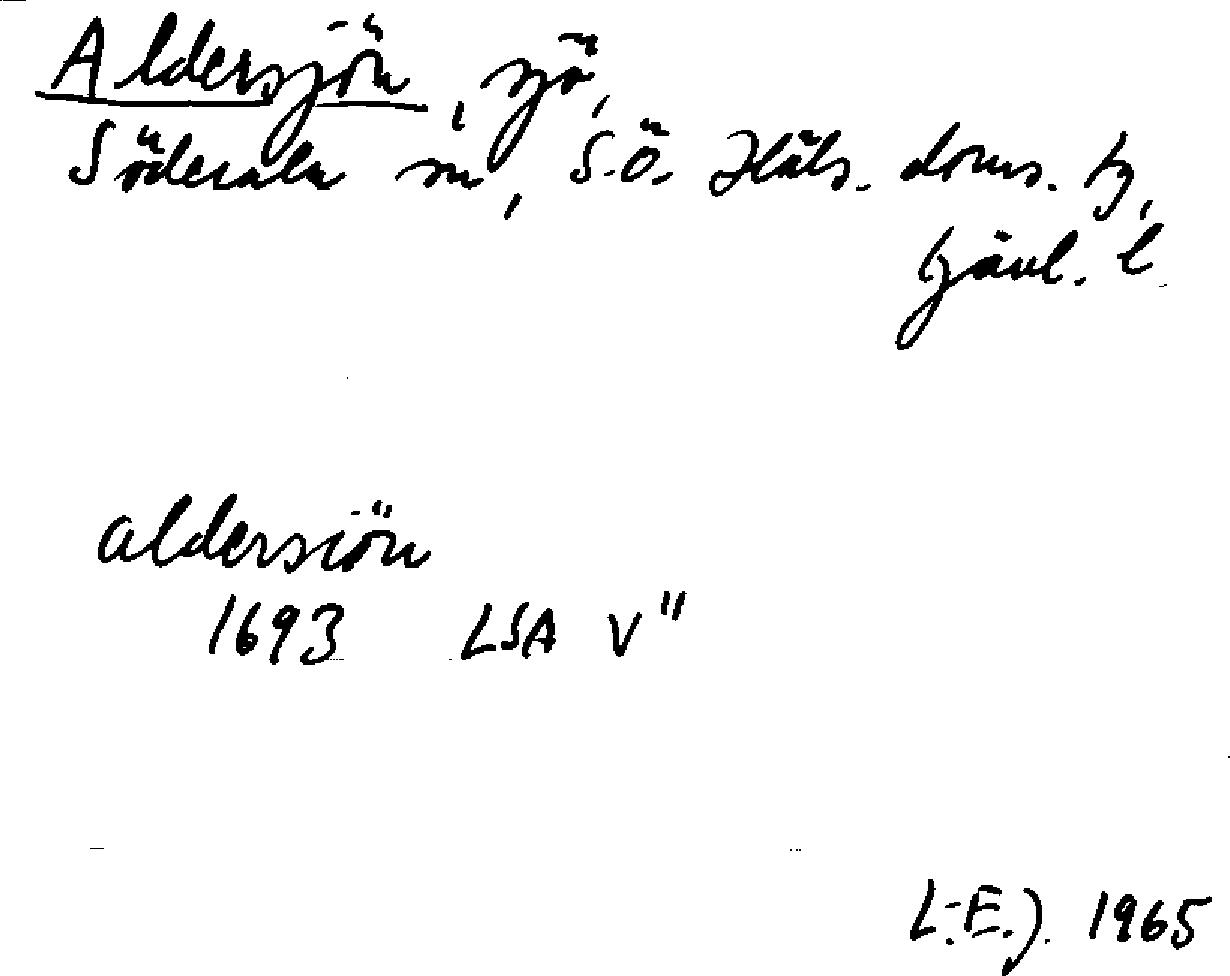 Aldersjön, sjö,
Söderala sn, S.Ö. Häls. doms. tg,
Gävl. l
aldersiön
1693 LSA V"
L.E.J. 1965